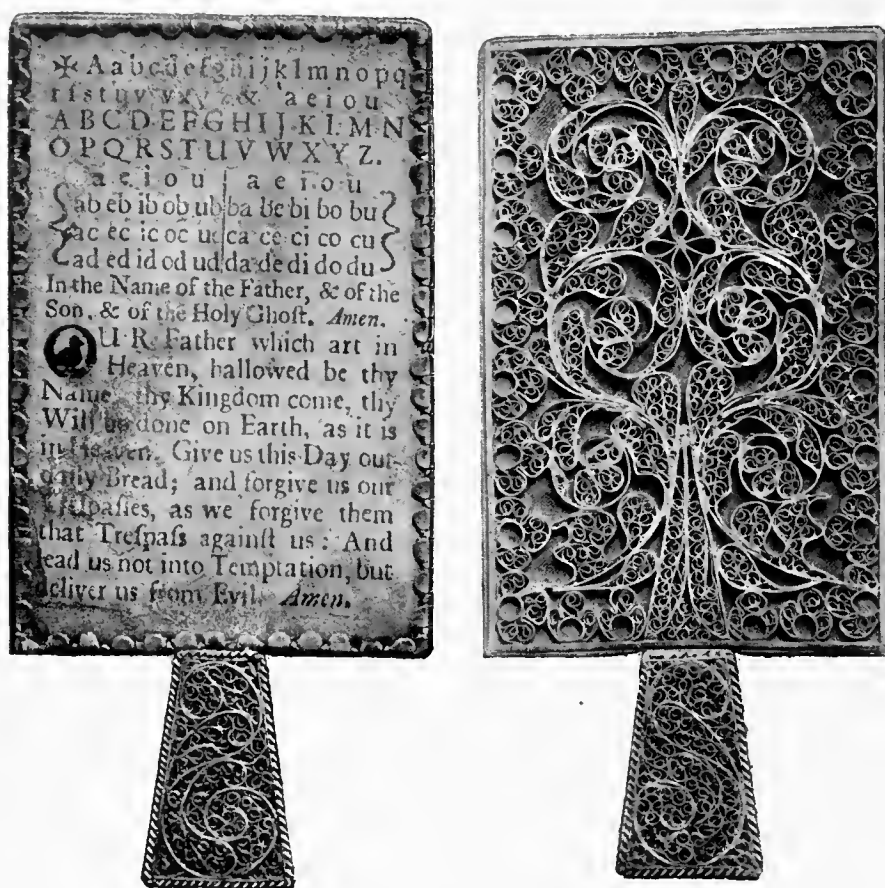 ✠ A a b c d e f g h i j k l m n o p q
r ſ s t u v w x y z & a e i o u
A B C D E F G H I J K L M N
O P Q R S T U V W X Y Z.
a e i o u a e i o u
ab eb ib ob ub ba be bi bo bu
ac ec ic oc uc ca ce ci co cu
ad ed id od ud da de di do du
In the Name of the Father, & of the
Son, & of the Holy Ghoſt. Amen.
OUR Father which art in
Heaven, hallowed be thy
Name, thy Kingdom come, thy
Will be done on Earth, as it is
in Heaven. Give us this Day our
daily Bread; and forgive us our
Treſpaſſes, as we forgive them
that Treſpaſs againſt us: And
lead us not into Temptation, but
deliver us from Evil. Amen.